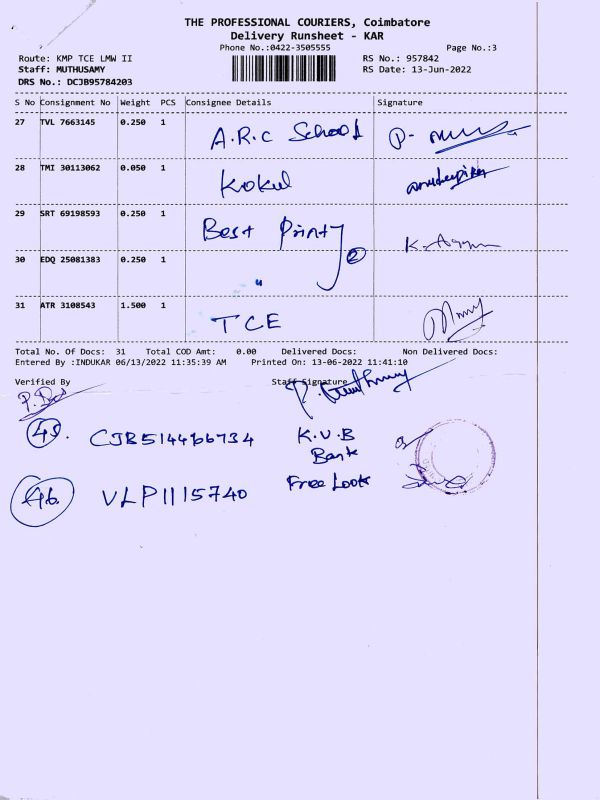 THE PROFESSIONAL COURIERS, Coimbatore
Delivery Runsheet - KAR
Phone No.:0422-3505555 Page No.:3
Route: KMP TCE LMW II RS No.: 957842
Staff: MUTHUSAMY RS Date: 13-Jun-2022
DRS No.: DCJB95784203
S No Consignment No Weight PCS Consignee Details Signature
27 TVL 7663145 0.250 1 A.R.C School
28 TMI 30113062 0.050 1 Kokul
29 SRT 69198593 0.250 1 Best Print
30 EDQ 25081383 0.250 1 " 2
31 ATR 3108543 1.500 1 TCE
Total No. Of Docs: 31 Total COD Amt: 0.00 Delivered Docs: Non Delivered Docs:
Entered By :INDUKAR 06/13/2022 11:35:39 AM Printed On: 13-06-2022 11:41:10
Verified By Staff Signature
45. CJB514466734 K.V.B
Bank
46. VLP1115740 Free Look